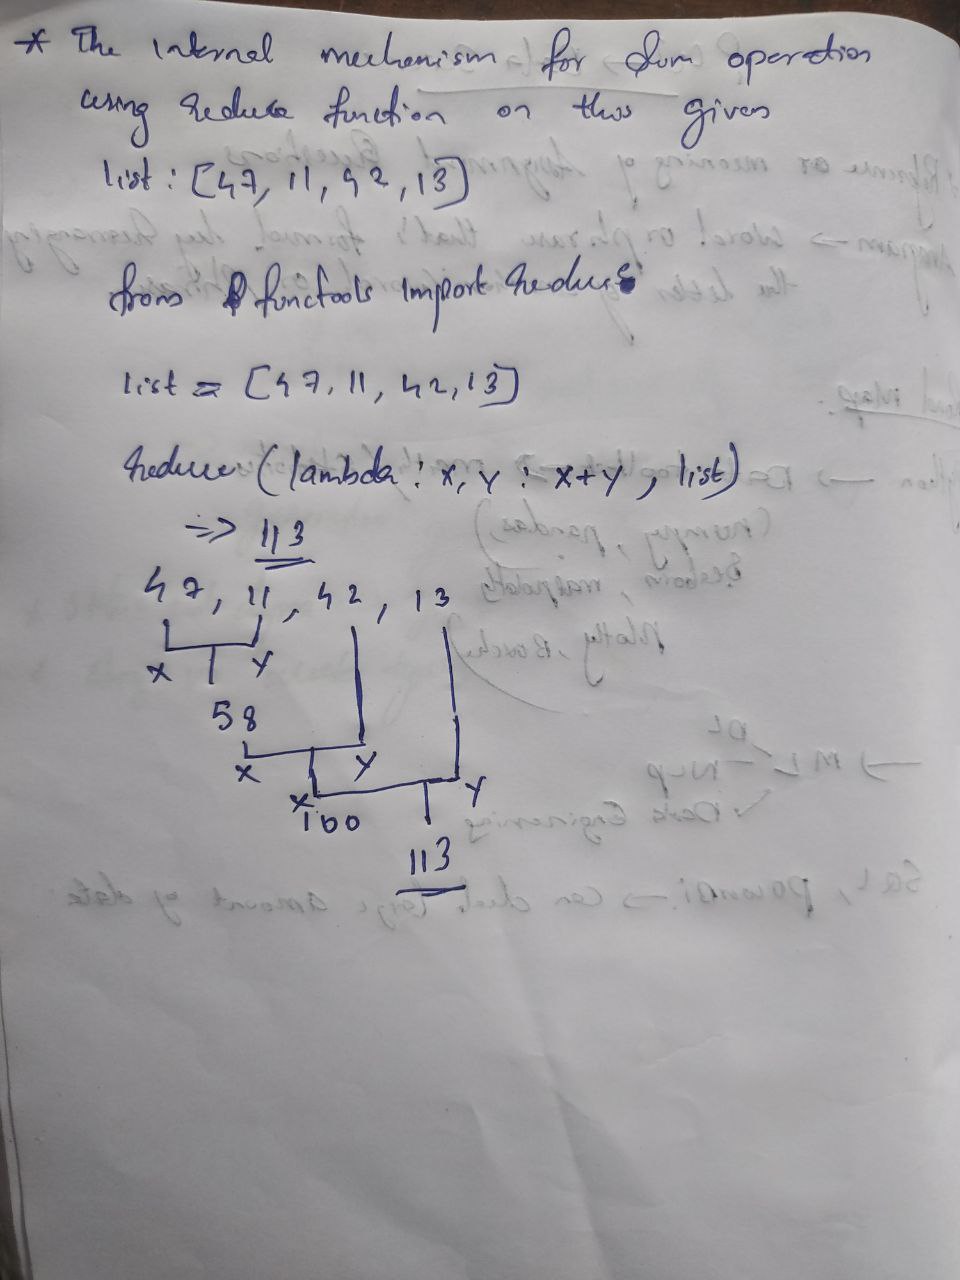 * The internal mechanism for sum operation
using reduce function on this given
list : [47, 11, 42, 13]
from functools import reduce
list = [47, 11, 42, 13]
reduce (lambda : x, y : x+y, list)
=> 113
47, 11, 42, 13
x y
58
x y
x y
100
113